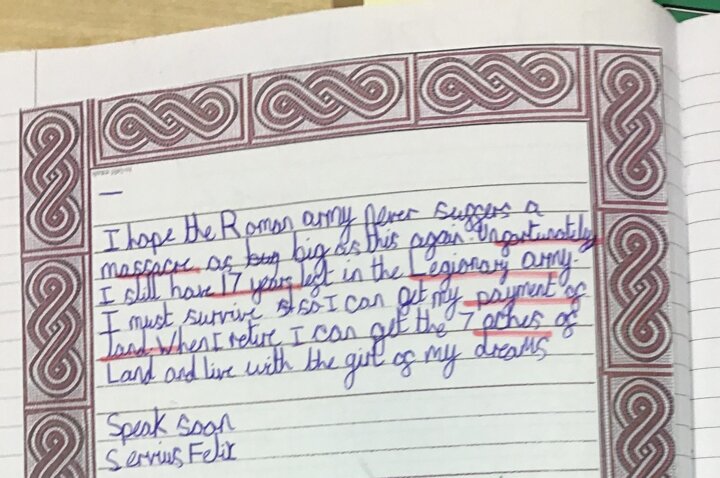 I hope the Roman army never suffers a
massacre as bug big as this again. Unfortunatley
I still have 17 years left in the Legionary army.
I must survive st so I can get my payment of
land. When I retire I can get the 7 aches of
Land and live with the girl of my dreams
Speak soon
Servius Felix